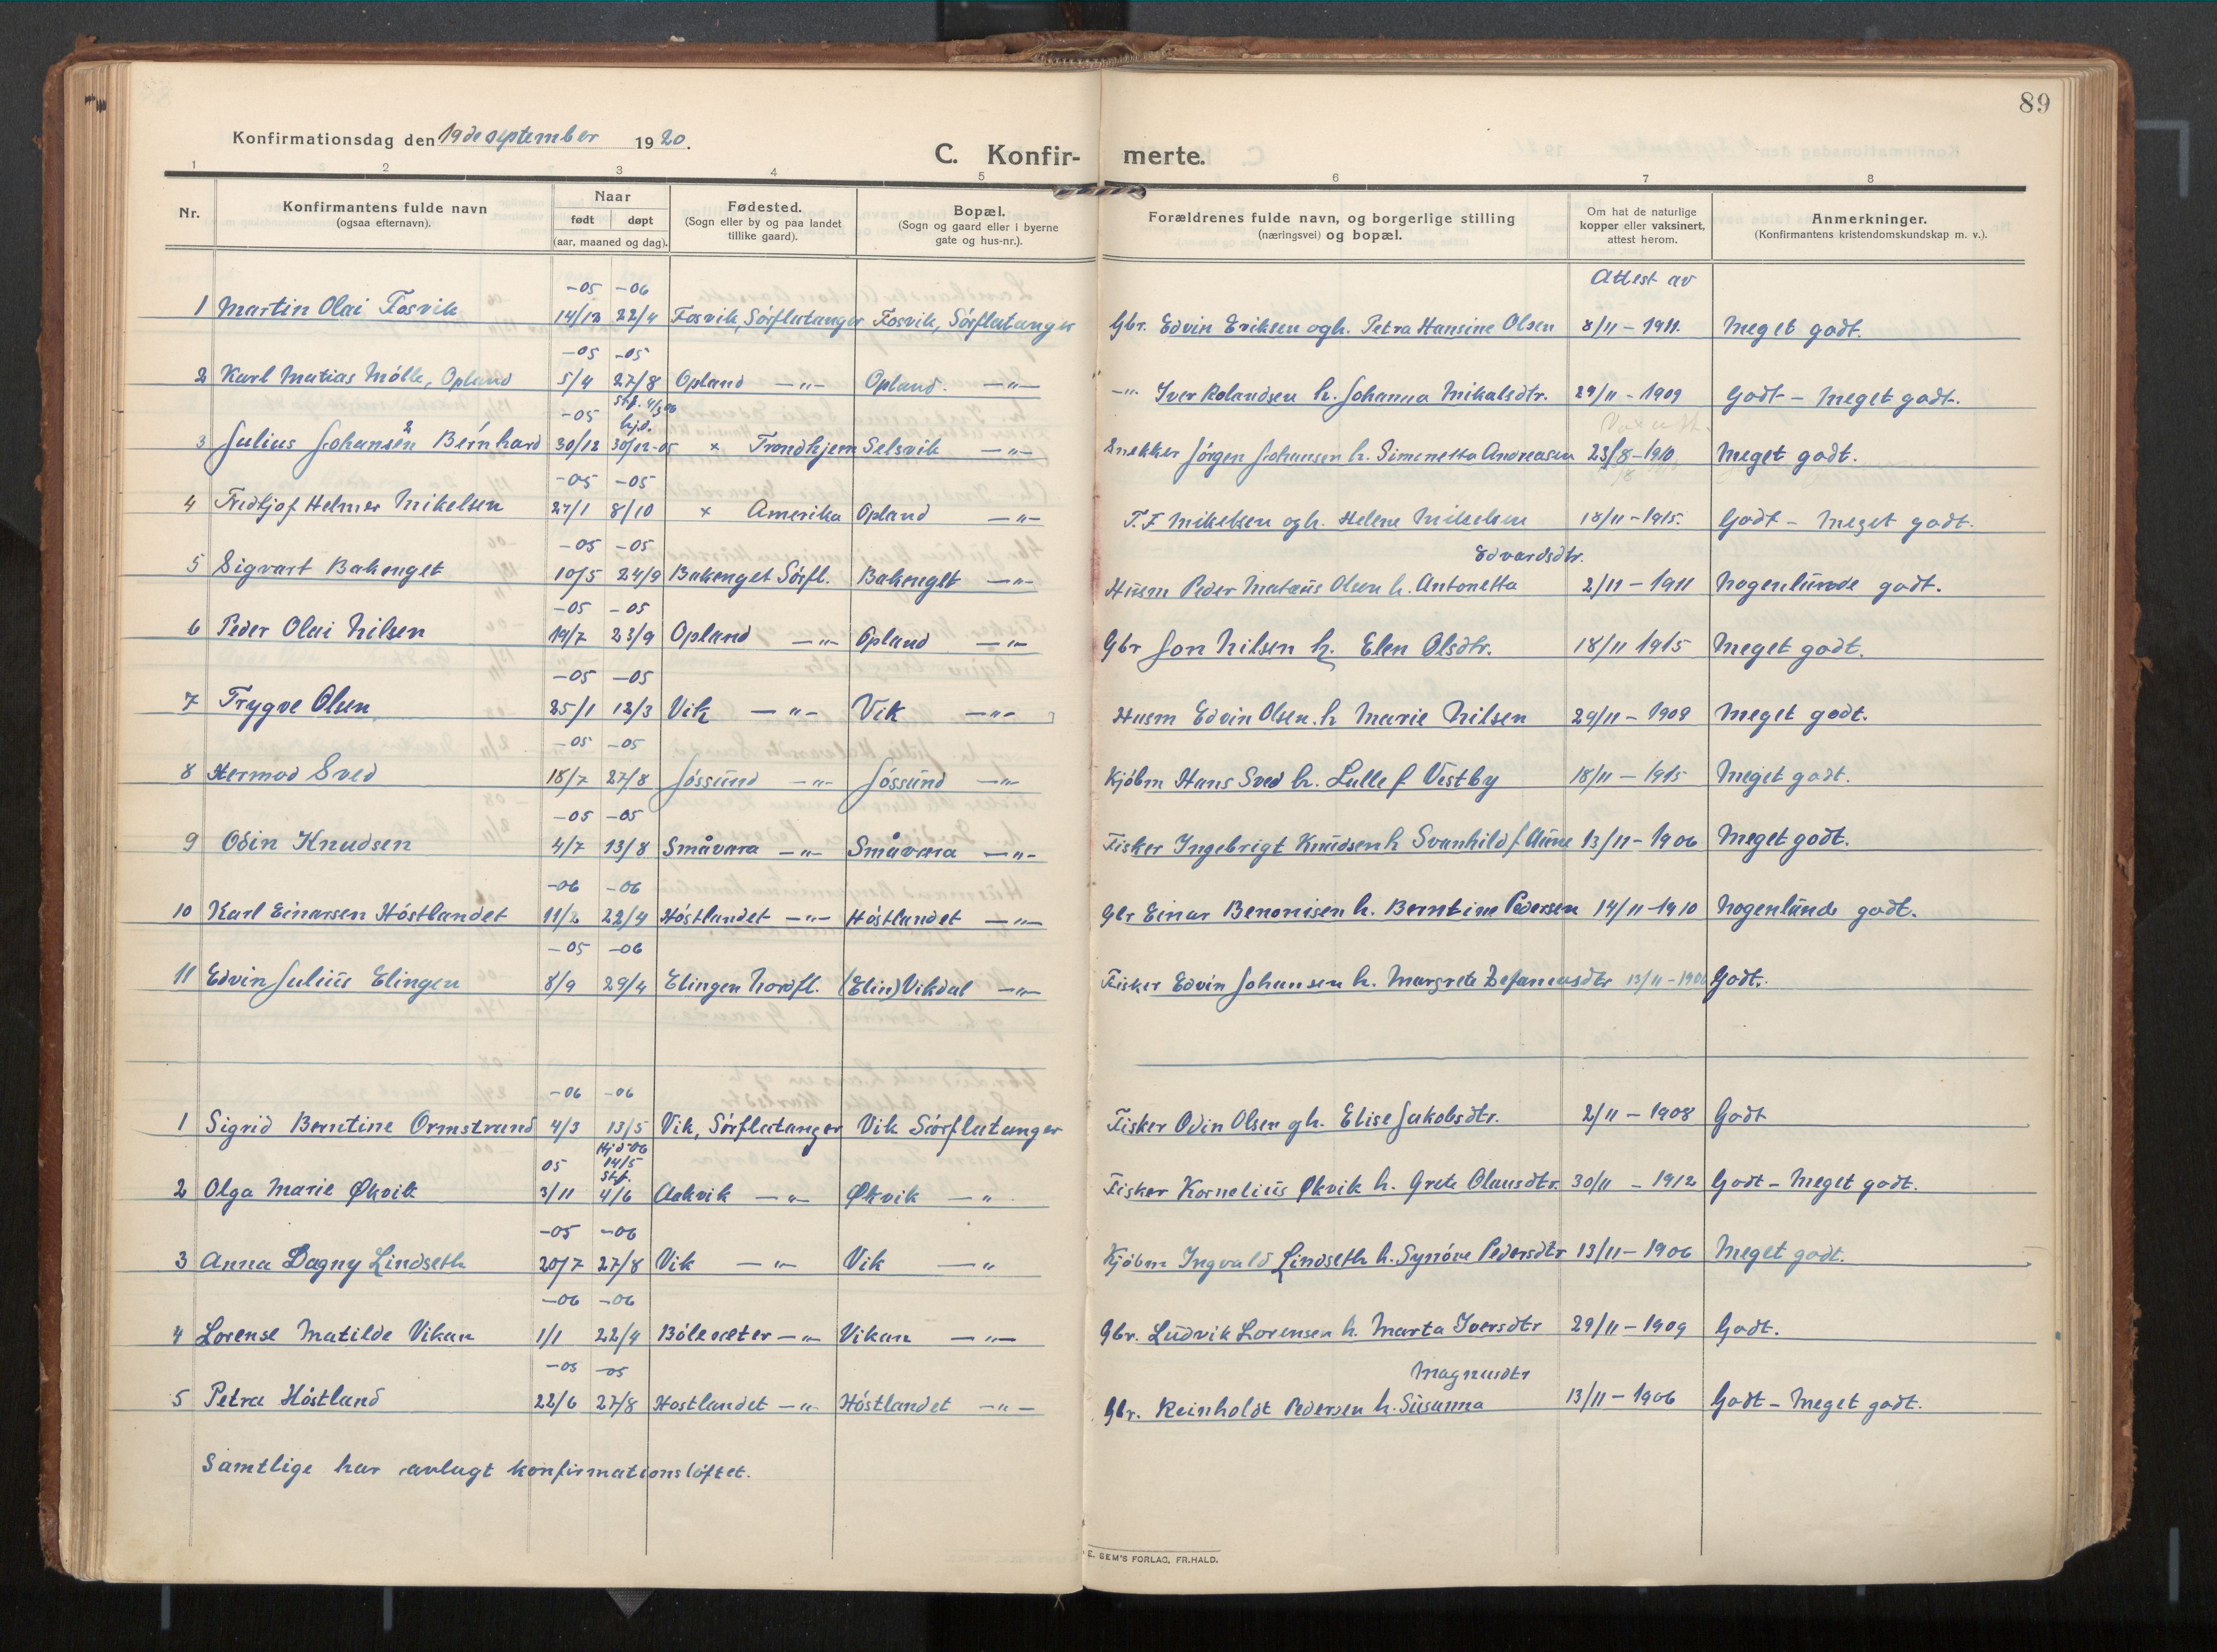 89
Konfirmationsdag den 19de september 1920.
C. Konfir- merte.
1 2 3 4 5 6 7 8
Nr. Konfirmantens fulde navn (ogsaa efternavn). Naar født døpt (aar, maaned og dag). Fødested. (Sogn eller by og paa landet tillike gaard). Bopæl. (Sogn og gaard eller i byerne gate og hus-nr.). Forældrenes fulde navn, og borgerlige stilling (næringsvei) og bopæl. Om hat de naturlige kopper eller vaksinert, attest herom. Anmerkninger. (Konfirmantens kristendomskundskap m. v.).
-05 -06 Attest av
1 Martin Olai Fosvik 14/12 22/4 Fosvik, Sörflatanger Fosvik, Sörflatanger Gbr. Edvin Eriksen og h. Petra Hansine Olsen 8/11 - 1911. Meget godt.
-05 -05
2 Karl Matias Mölle, Opland 5/4 27/8 Opland -"- Opland. -"- -"- Iver Rolandsen h. Johanna Mikalsdtr. 29/11 - 1909 Godt - Meget godt.
-05 Stf. 4/3 06 hjd.
3 Julius Johansen 2 Bernhard 30/12 30/12-05 × Trondhjem Selsvik -"- Snekker Jörgen Johansen h. Simenetta Andreasen 23/8-1910 Meget godt.
-05 -05
4 Fridtjof Helmer Mikelsen 27/1 8/10 × Amerika Opland -"- T. F Mikelsen og h. Helene Mikelsen 18/11-1915. Godt - Meget godt.
-05 -05 Edvardsdtr.
5 Sigvart Bakenget 10/5 24/9 Bakenget Sörfl. Bakenget -"- Husm Peder Mataus Olsen h. Antonetta 2/11 - 1911 Nogenlunde godt.
-05 -05
6 Peder Olai Nilsen 19/7 23/9 Opland -"- Opland -"- Gbr Jon Nilsen h. Elen Olsdtr. 18/11 1915 Meget godt.
-05 -05
7 Trygve Olsen 25/1 12/3 Vik -"- Vik -"- Husm Edvin Olsen h Marie Nilsen 29/11 - 1909 Meget godt.
-05 -05
8 Hermod Sved 18/7 27/8 Jössund -"- Jössund -"- Kjöbm Hans Sved h. Lulle f Vestby 18/11 - 1915 Meget godt.
-05 -05
9 Odin Knudsen 4/7 13/8 Småvara -"- Småvara -"- Fisker Ingebrigt Knudsen h Svanhild f Aune 13/11 - 1906 Meget godt.
-06 -06
10 Karl Einarsen Höstlandet 11/2 22/4 Höstlandet -"- Höstlandet -"- Gbr Einar Benonisen h. Berntine Pedersen 14/11-1910 Nogenlunde godt.
-05 -06
11 Edvin Julius Elingen 8/9 29/4 Elingen Nordfl. (Elin) Vikdal -"- Fisker Edvin Johansen h. Margrete Zefaniasdtr 13/11-1906 Godt.
-06 -06
1 Sigrid Berntine Ormstrand 4/3 13/5 Vik, Sörflatanger Vik Sörflatanger Fisker Odin Olsen og h. Elise Jakobsdtr. 2/11 - 1908 Godt
05 Hjd 06 14/5 Stf.
2 Olga Marie Økvik 3/11 4/6 Aakvik -"- Økvik -" Fisker Kornelius Økvik h. Grete Olausdtr. 30/11 - 1912 Godt - Meget godt.
-05 -06
3 Anna Dagny Lindseth 20/7 27/8 Vik -"- Vik -" Kjöbm Ingvald Lindseth h. Synöve Pedersdtr 13/11 - 1906 Meget godt.
-06 -06
4 Lorense Matilde Vikan 1/1 22/4 Bölesæter -"- Vikan -"- Gbr. Ludvik Lorensen h. Marta Iversdtr 29/11 - 1909 Godt.
-05 -05 Magnusdtr
5 Petra Höstland 22/6 27/8 Hostlandet -"- Höstlandet -"- Gbr. Reinholdt Pedersen h. Susanna 13/11 - 1906 Godt - Meget godt.
Samtlige har avlagt konfirmationslöftet.
E. SEM'S FORLAG, FR.HALD.